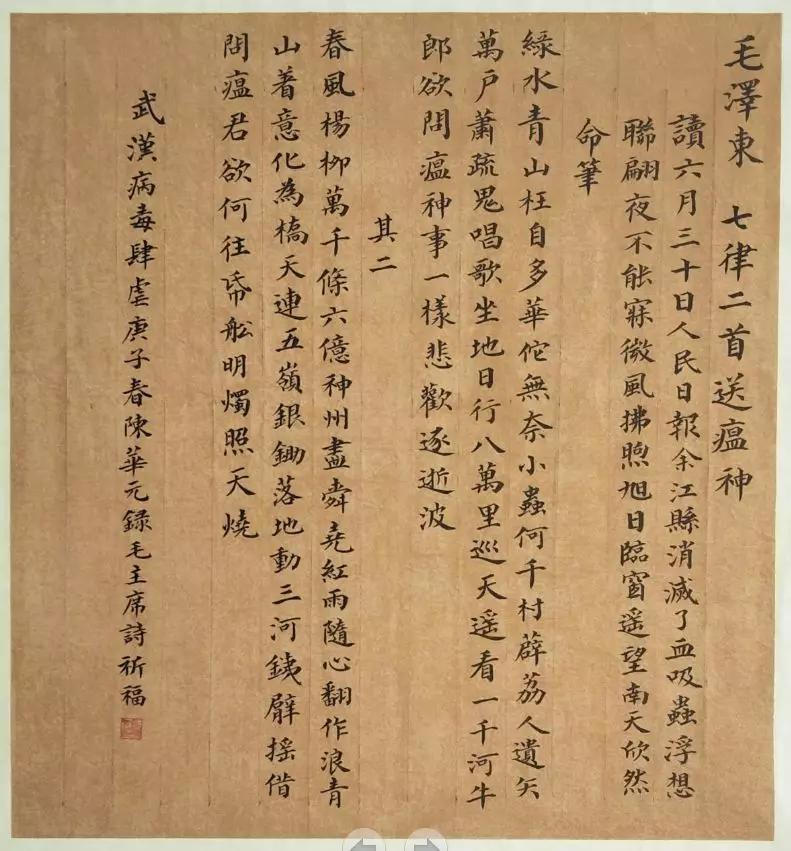 毛澤東 七律二首送瘟神
讀六月三十日人民日報余江縣消滅了血吸蟲浮想
聯翩夜不能寐微風拂煦旭日臨窗遥望南天欣然
命筆
緑水青山枉自多華佗無奈小蟲何千村薜荔人遺矢
萬户蕭疏鬼唱歌坐地日行八萬里巡天遥看一千河牛
郎欲問瘟神事一樣悲歡逐逝波
其二
春風楊柳萬千條六億神州盡舜堯紅雨隨心翻作浪青
山着意化為橋天連五嶺銀鋤落地動三河銕臂摇借
問瘟君欲何往帋船明燭照天燒
武漢病毒肆虐庚子春陳華元録毛主席詩祈福